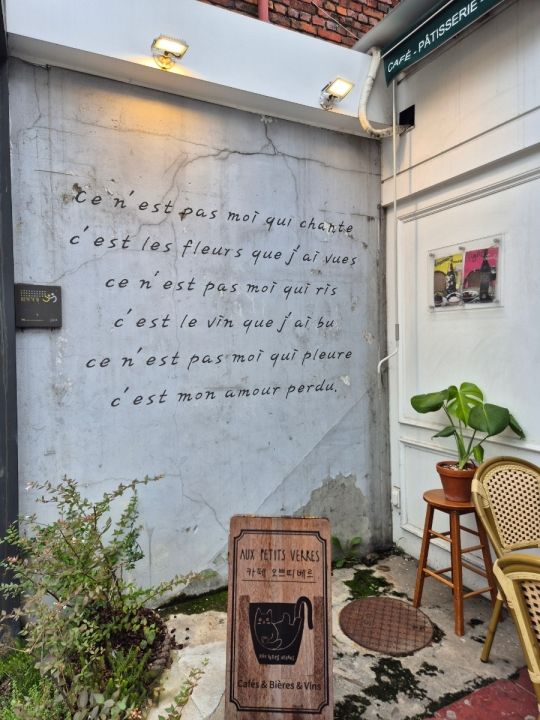 CAFÉ - PÂTISSERIE -
Ce n'est pas moi qui chante
c'est les fleurs que j'ai vues
ce n'est pas moi qui ris
c'est le vin que j'ai bu
ce n'est pas moi qui pleure
c'est mon amour perdu.
AUX PETITS VERRES
카페 오쁘띠베르
AUX PETITS VERRES
Cafés & Bières & Vins